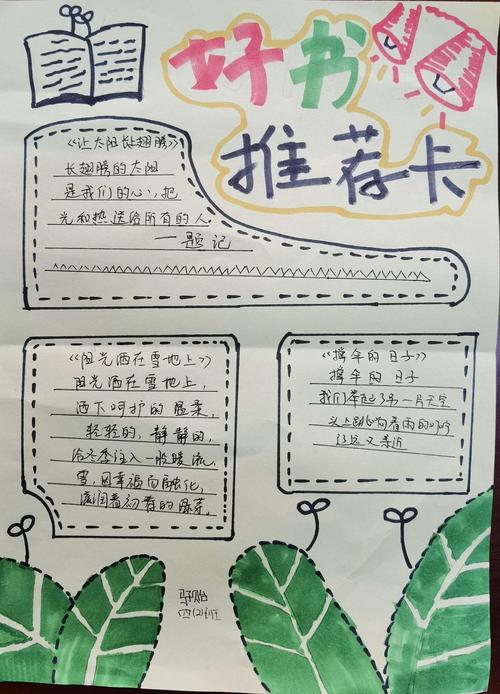 好书
推荐卡
《让太阳长翅膀》
长翅膀的太阳
是我们的心，把
光和热送给所有的人
——题记
《阳光洒在雪地上》
阳光洒在雪地上，
洒下呵护的温柔，
轻轻的，静静的，
给冬季注入一股暖流，
雪，因幸福而融化，
滋润着初春的绿芽。
《撑伞的日子》
撑伞的日子
我们举起了另一片天空
头上跳响着雨的叮咛
遥远又亲近
四(2)班